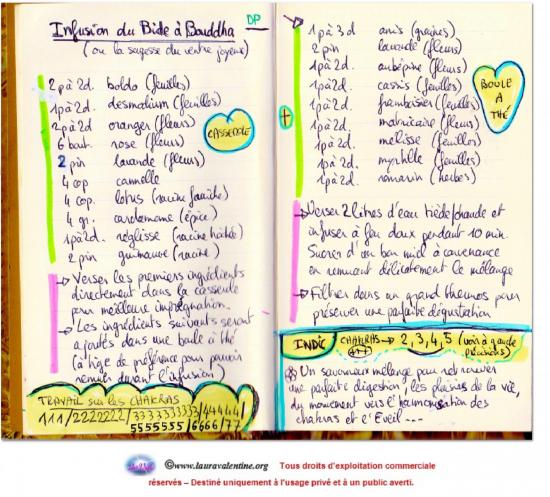 Infusion du Bide à Bouddha DP
(ou la sagesse du ventre joyeux)
2pà2d. boldo (feuilles)
1pà2d. desmodium (feuilles)
2pà2d oranger (fleurs)
6 bout. rose (fleurs)
2 pin lavande (fleurs)
4 cop cannelle
4 cop. lotus (racine fraîche)
4 gr. cardamome (épice)
1pà2d. réglisse (racine hachée)
2 pin guimauve (racine)
CASSEROLE
→ Verser les premiers ingrédients
directement dans la casserole
pour meilleure imprégnation.
→ Les ingrédients suivants seront
ajoutés dans une boule à thé
(à tige de préférence pour pouvoir
remuer durant l'infusion)
TRAVAIL sur les CHAKRAS
111/2222222/3333333333/44444/
5555555/6666/77
1pà3d anis (graines)
2pin lavande (fleurs)
1pà2d. aubépine (fleurs)
1pà2d. cassis (feuilles)
1pà2d. framboisier (feuilles)
1pà2d. matricaire (fleurs)
1pà2d. mélisse (feuilles)
1pà2d. myrtille (feuilles)
1pà2d. romarin (herbes)
+
BOULE
A
THÉ
→ Verser 2 litres d'eau tiède/chaude et
infuser à feu doux pendant 10 min.
Sucrer d'un bon miel à convenance
en remuant délicatement le mélange
→ Filtrer dans un grand thermos pour
préserver une parfaite dégustation
INDIC CHAKRAS → 2,3,4,5 (voir à gauche
précisions)
Un savoureux mélange pour retrouver
une parfaite digestion, les plaisirs de la vie,
du mouvement vers l'harmonisation des
chakras et l'Eveil...
©www.lauravalentine.org Tous droits d'exploitation commerciale
réservés – Destiné uniquement à l'usage privé et à un public averti.